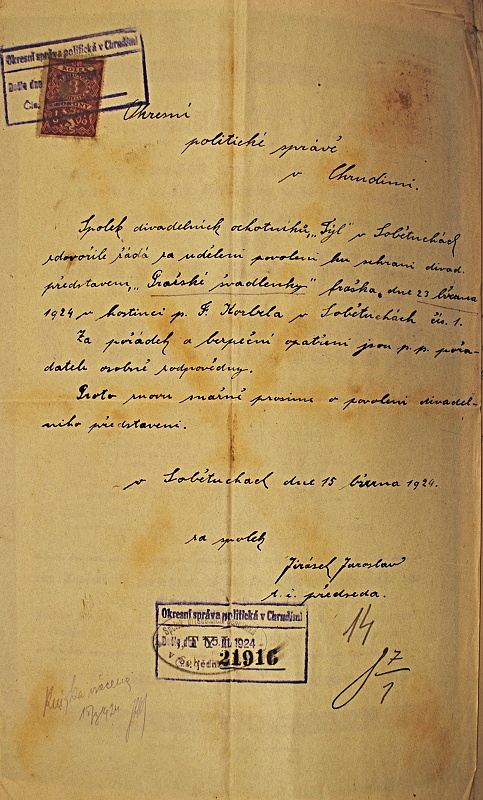 Okresní správa politická v Chrudimi
Došlo dne
Čís.
KOLEK
3
KORUNY
Okresní
politické správě
v Chrudimi.
Spolek divadelních ochotníků „Tyl" v Sobětuchách
zdvořile žádá za udělení povolení ku sehrání divad.
představení, „Pražské švadlenky" fraška, dne 23 března
1924 v hostinci p. F. Korbela v Sobětuchách čís. 1.
Za pořádek a bezpeční opatření jsou p. p. pořa-
datelé osobně zodpovědny.
Proto znovu snažně prosíme o povolení divadel-
ního představení.
v Sobětuchách dne 15 března 1924.
za spolek
Jirásek Jaroslav
t. č. předseda.
Okresní správa politická v Chrudimi
Došlo dne 15. III. 1924
TYL
21916
14
7
1
Knížka vrácena
15/3 1924